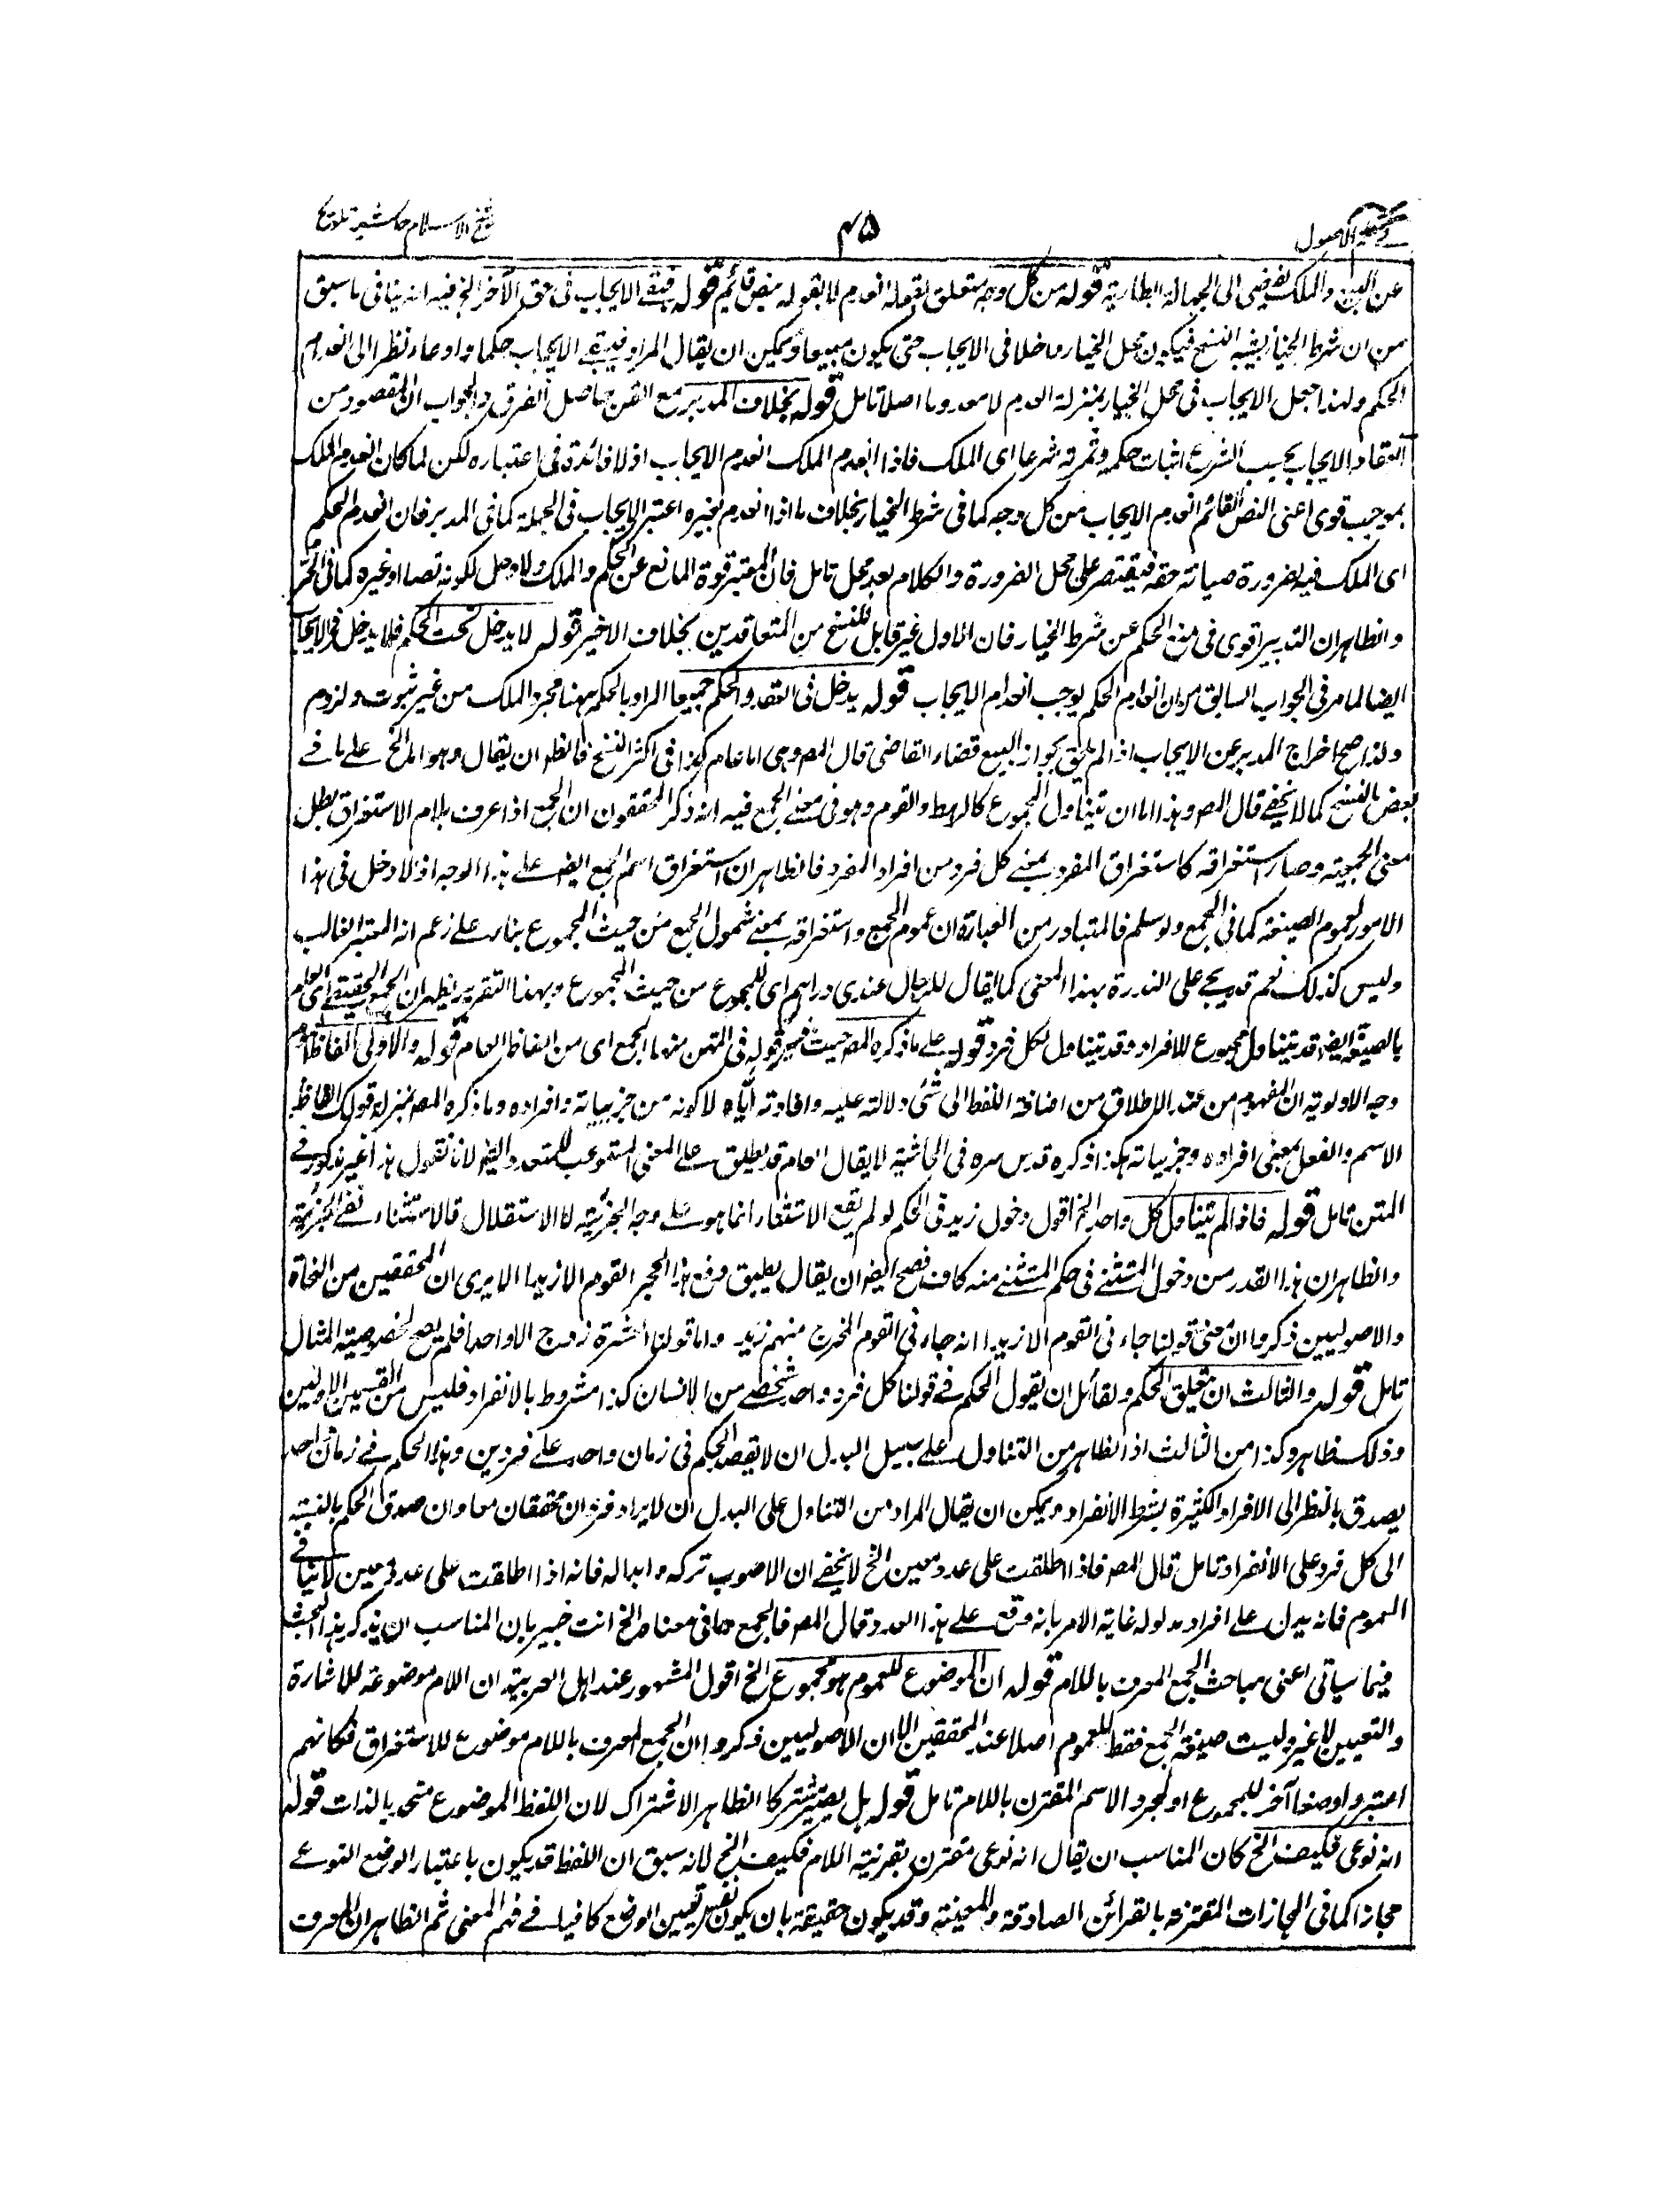 شيخ الاسلام حاشية تلويح
٤٥
الاصول
عن البيع والملك يفضى الى الجهالة الطارية قوله من كل وجه متعلق بقوله انعدم لا بقوله بنص قائم قوله فيبقى الايجاب فى حق الآخر الخ فيه انه ينافى ما سبق
من ان شرط الخيار يشبه النسخ فيكون محل الخيار داخلا فى الايجاب حتى يكون مبيعا ويمكن ان يقال المراد فيبقى الايجاب حكما وادعاء نظرا الى انعدام
الحكم ولهذا جعل الايجاب فى محل الخيار بمنزلة العدم لا معدوما اصلا تامل قوله بخلاف المدبر مع القن حاصل الفرق والجواب ان المقصود من
انعقاد الايجاب بحسب الشرع اثبات حكمه وثمرته شرعا اى الملك فاذا انعدم الملك انعدم الايجاب اذ لا فائدة فى اعتباره لكن لما كان انعدام الملك
بموجب قوى اعنى النص القائم انعدم الايجاب من كل وجه كما فى شرط الخيار بخلاف ما اذا انعدم بغيره اعتبر الايجاب فى الجملة كما فى المدبر فان انعدام الحكم
اى الملك فيه لضرورة صيانة حقه فيقتصر على محل الضرورة والكلام بعد محل تامل فان المعتبر قوة المانع عن الحكم والملك ولا دخل لكونه نصا او غيره كما فى الحر
والظاهر ان التدبير اقوى فى منع الحكم عن شرط الخيار فان الاول غير قابل للفسخ من المتعاقدين بخلاف الاخير قوله لا يدخل تحت الحكم فلا يدخل فى الايجاب
ايضا لما مر فى الجواب السابق من ان انعدام الحكم يوجب انعدام الايجاب قوله يدخل فى العقد والحكم جميعا المراد بالحكم ههنا مجرد الملك من غير ثبوت ولزوم
ولذا صح اخراج المدبر عن الايجاب اذا لم يلحق بجواز البيع قضاء القاضى قال المصـ وهى اما عام كذا فى اكثر النسخ فالظاهر ان يقال وهو اما الخ على ما فى
بعض النسخ كما لا يخفى قال المصـ وهذا اما ان يتناول المجموع كالرهط والقوم وهو فى معنى الجمع فيه انه ذكر المحققون ان الجمع اذا عرف بلام الاستغراق بطل
معنى الجمعية وصار استغراقه كاستغراق المفرد بمعنى كل فرد من افراد المفرد فالظاهر ان استغراق اسم الجمع ايضا على هذا الوجه اذ لا دخل فى هذا
الامور لعموم الصيغة كما فى الجمع ولو سلم فالمتبادر من العبارة ان عموم الجمع واستغراقه بمعنى شمول الجمع من حيث المجموع بناء على زعم انه المعتبر الغالب
وليس كذلك نعم قد يجئ على الندرة بهذا المعنى كما يقال للرجال عندى دراهم اى للمجموع من حيث المجموع وبهذا التقرير يظهر ان الجمع الحقيقى اى العام
بالصيغة ايضا قد يتناول مجموع الافراد وقد يتناول لكل فرد قوله على ما ذكره المصـ حيث فسر قوله فى المتن منها الجمع اى من الفاظ العام قوله والاولى الفاظ العموم
وجه الاولوية ان المفهوم من عند الاطلاق من اضافة اللفظ الى شئ دلالته عليه وافادته اياه لا كونه من جزئياته وافراده وما ذكره المصـ بمنزلة قولك الفاظ
الاسم والفعل بمعنى افراده وجزئياته هكذا ذكره قدس سره فى الحاشية لا يقال العام قد يطلق على المعنى المستوعب للمتعدد ايضا لانا نقول هذا غير مذكور فى
المتن تامل قوله فاذا لم يتناول كل واحد الخ اقول دخول زيد فى الحكم لو لم يقع الاستثناء انما هو على وجه الجزئية لا الاستقلال فالاستثناء لنفى الجزئية
والظاهر ان هذا القدر من دخول المستثنى فى حكم المستثنى منه كاف فصح ايضا ان يقال يطيق رفع هذا الحجر القوم الا زيدا الا يرى ان المحققين من النحاة
والاصوليين ذكروا ان معنى قولنا جاءنى القوم الا زيدا انه جاءنى القوم المخرج منهم زيد واما قولنا عشرة زوج الا واحدا فلم يصح لخصوصية المثال
تامل قوله والثالث ان يتعلق الحكم ولقائل ان يقول الحكم فى قولنا كل فرد واحد شخصى من الانسان كذا مشروط بالانفراد فليس من القسمين الاولين
وذلك ظاهر وكذا من الثالث اذ الظاهر من التناول على سبيل البدل ان لا يصدق الحكم فى زمان واحد على فردين وهذا الحكم فى زمان واحد
يصدق بالنظر الى الافراد الكثيرة بشرط الانفراد ويمكن ان يقال المراد من التناول على البدل ان لا يراد فردان تحققان معا وان صدق الحكم بالنسبة
الى كل فرد على الانفراد تامل قال المصـ فاذا اطلقت على عدد معين الخ لا يخفى ان الاصوب تركه وابداله فانه اذا اطلقت على عدد معين لا ينافى
العموم فانه يدل على افراد مدلوله غاية الامر بانه وقع على هذا العدد قال المصـ فالجمع وما فى معناه الخ انت خبير بان المناسب ان يذكر هذا البحث
فيما سياتى اعنى مباحث الجمع المعرف باللام قوله ان الموضوع للعموم هو مجموع الخ اقول المشهور عند اهل العربية ان اللام موضوعة للاشارة
والتعيين لا غير وليست صيغة الجمع فقط للعموم اصلا عند المحققين الا ان الاصوليين ذكروا ان الجمع المعرف باللام موضوع للاستغراق فكانهم
اعتبروا وضعا آخر للمجموع او لمجرد الاسم المقترن باللام تامل قوله بل يصير مشتركا الظاهر الاشتراك لان اللفظ الموضوع متحد بالذات قوله
انه نوعى فكيف الخ كان المناسب ان يقال انه نوعى مقترن بقرينة اللام فكيف الخ لانه سبق ان اللفظ قد يكون باعتبار الوضع النوعى
مجازا كما فى المجازات المقترنة بالقرائن الصادقة والمعينة وقد يكون حقيقة بان يكون نفس تعيين الوضع كافيا فى فهم المعنى ثم الظاهر ان المعرف